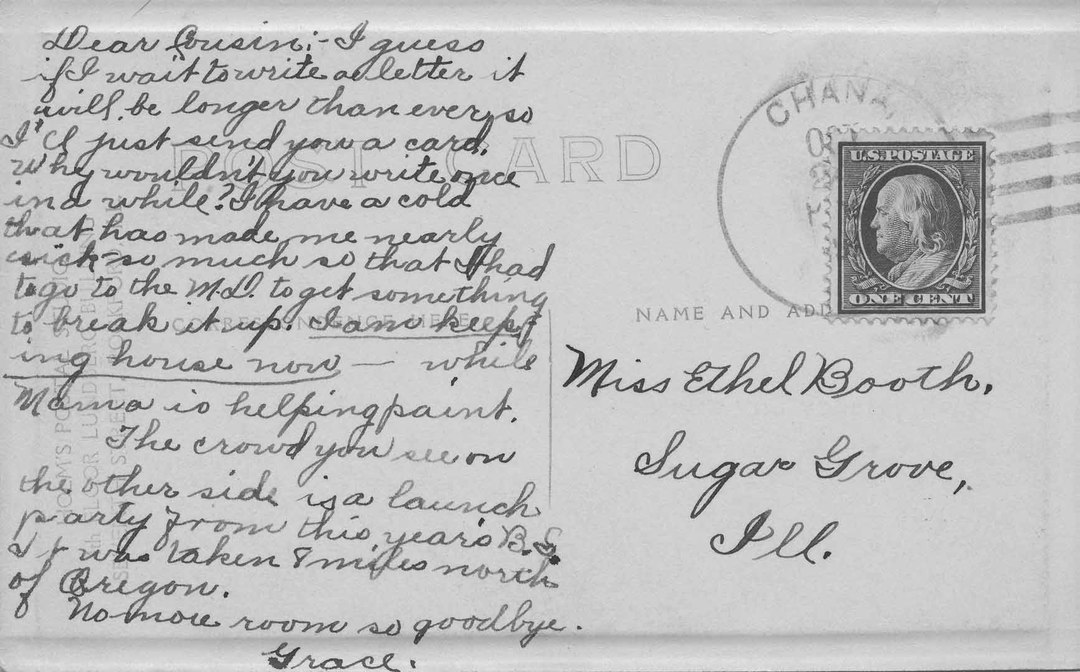 Dear Cousin:- I guess
if I wait to write a letter it
will be longer than ever, so
I'll just send you a card.
Why wouldn't you write once
in a while? I have a cold
that has made me nearly
sick - so much so that I had
to go to the M.D. to get something
to break it up. I am keep-
ing house now — while
Mama is helping paint.
The crowd you see on
the other side is a launch
party from this year's B.S.
It was taken 8 miles north
of Oregon.
No more room so goodbye.
Grace.
POST CARD
CORRESPONDENCE HERE
NAME AND ADD
CHANA,
U.S. POSTAGE
ONE CENT
Miss Ethel Booth,
Sugar Grove,
Ill.